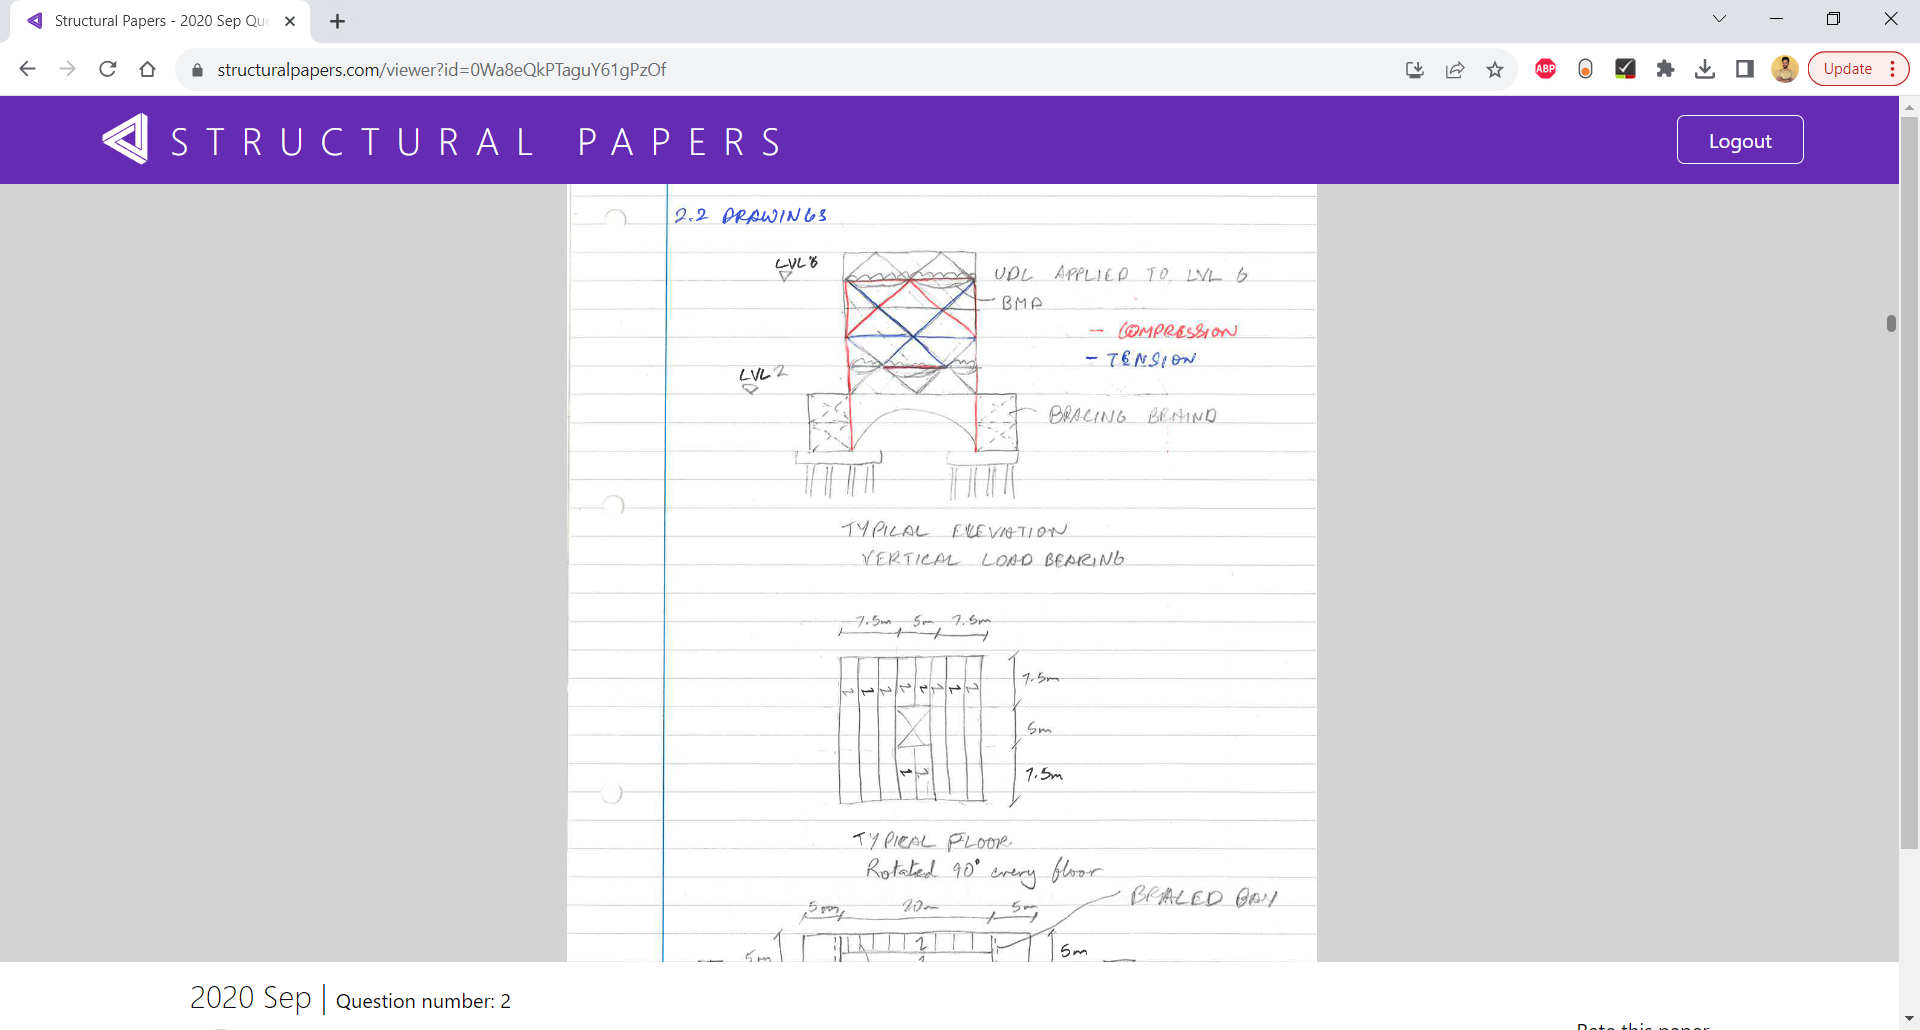 Structural Papers - 2020 Sep Qu
structuralpapers.com/viewer?id=0Wa8eQkPTaguY61gPzOf
ABP
Update
STRUCTURAL PAPERS
Logout
2.2 DRAWINGS
LVL 8
UDL APPLIED TO LVL 6
BMD
- COMPRESSION
- TENSION
LVL 2
BRACING BEHIND
TYPICAL ELEVATION
VERTICAL LOAD BEARING
7.5m 5m 7.5m
7.5m
5m
7.5m
TYPICAL FLOOR
Rotated 90° every floor
BRACED BAY
5m 20m 5m
5m 5m
2020 Sep | Question number: 2
Rate this paper